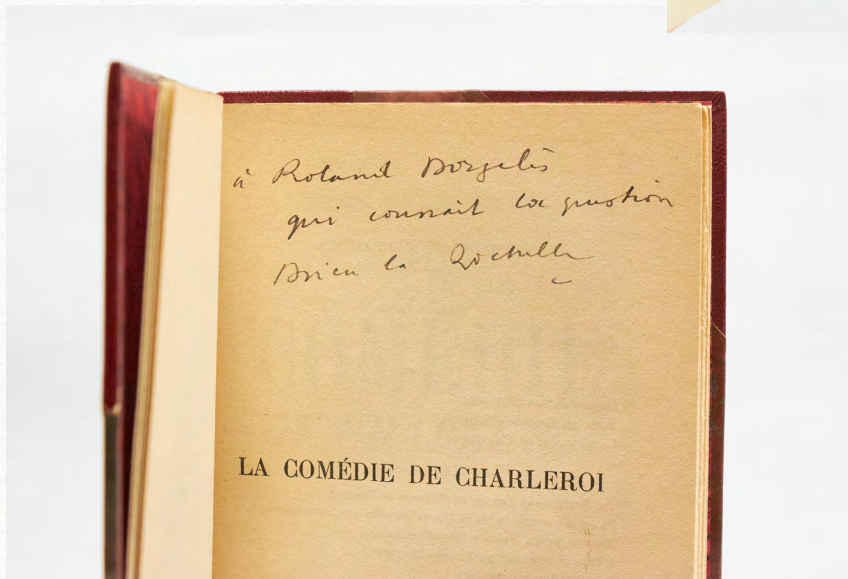 à Roland Dorgelès
qui connait la question
Drieu la Rochelle
LA COMÉDIE DE CHARLEROI